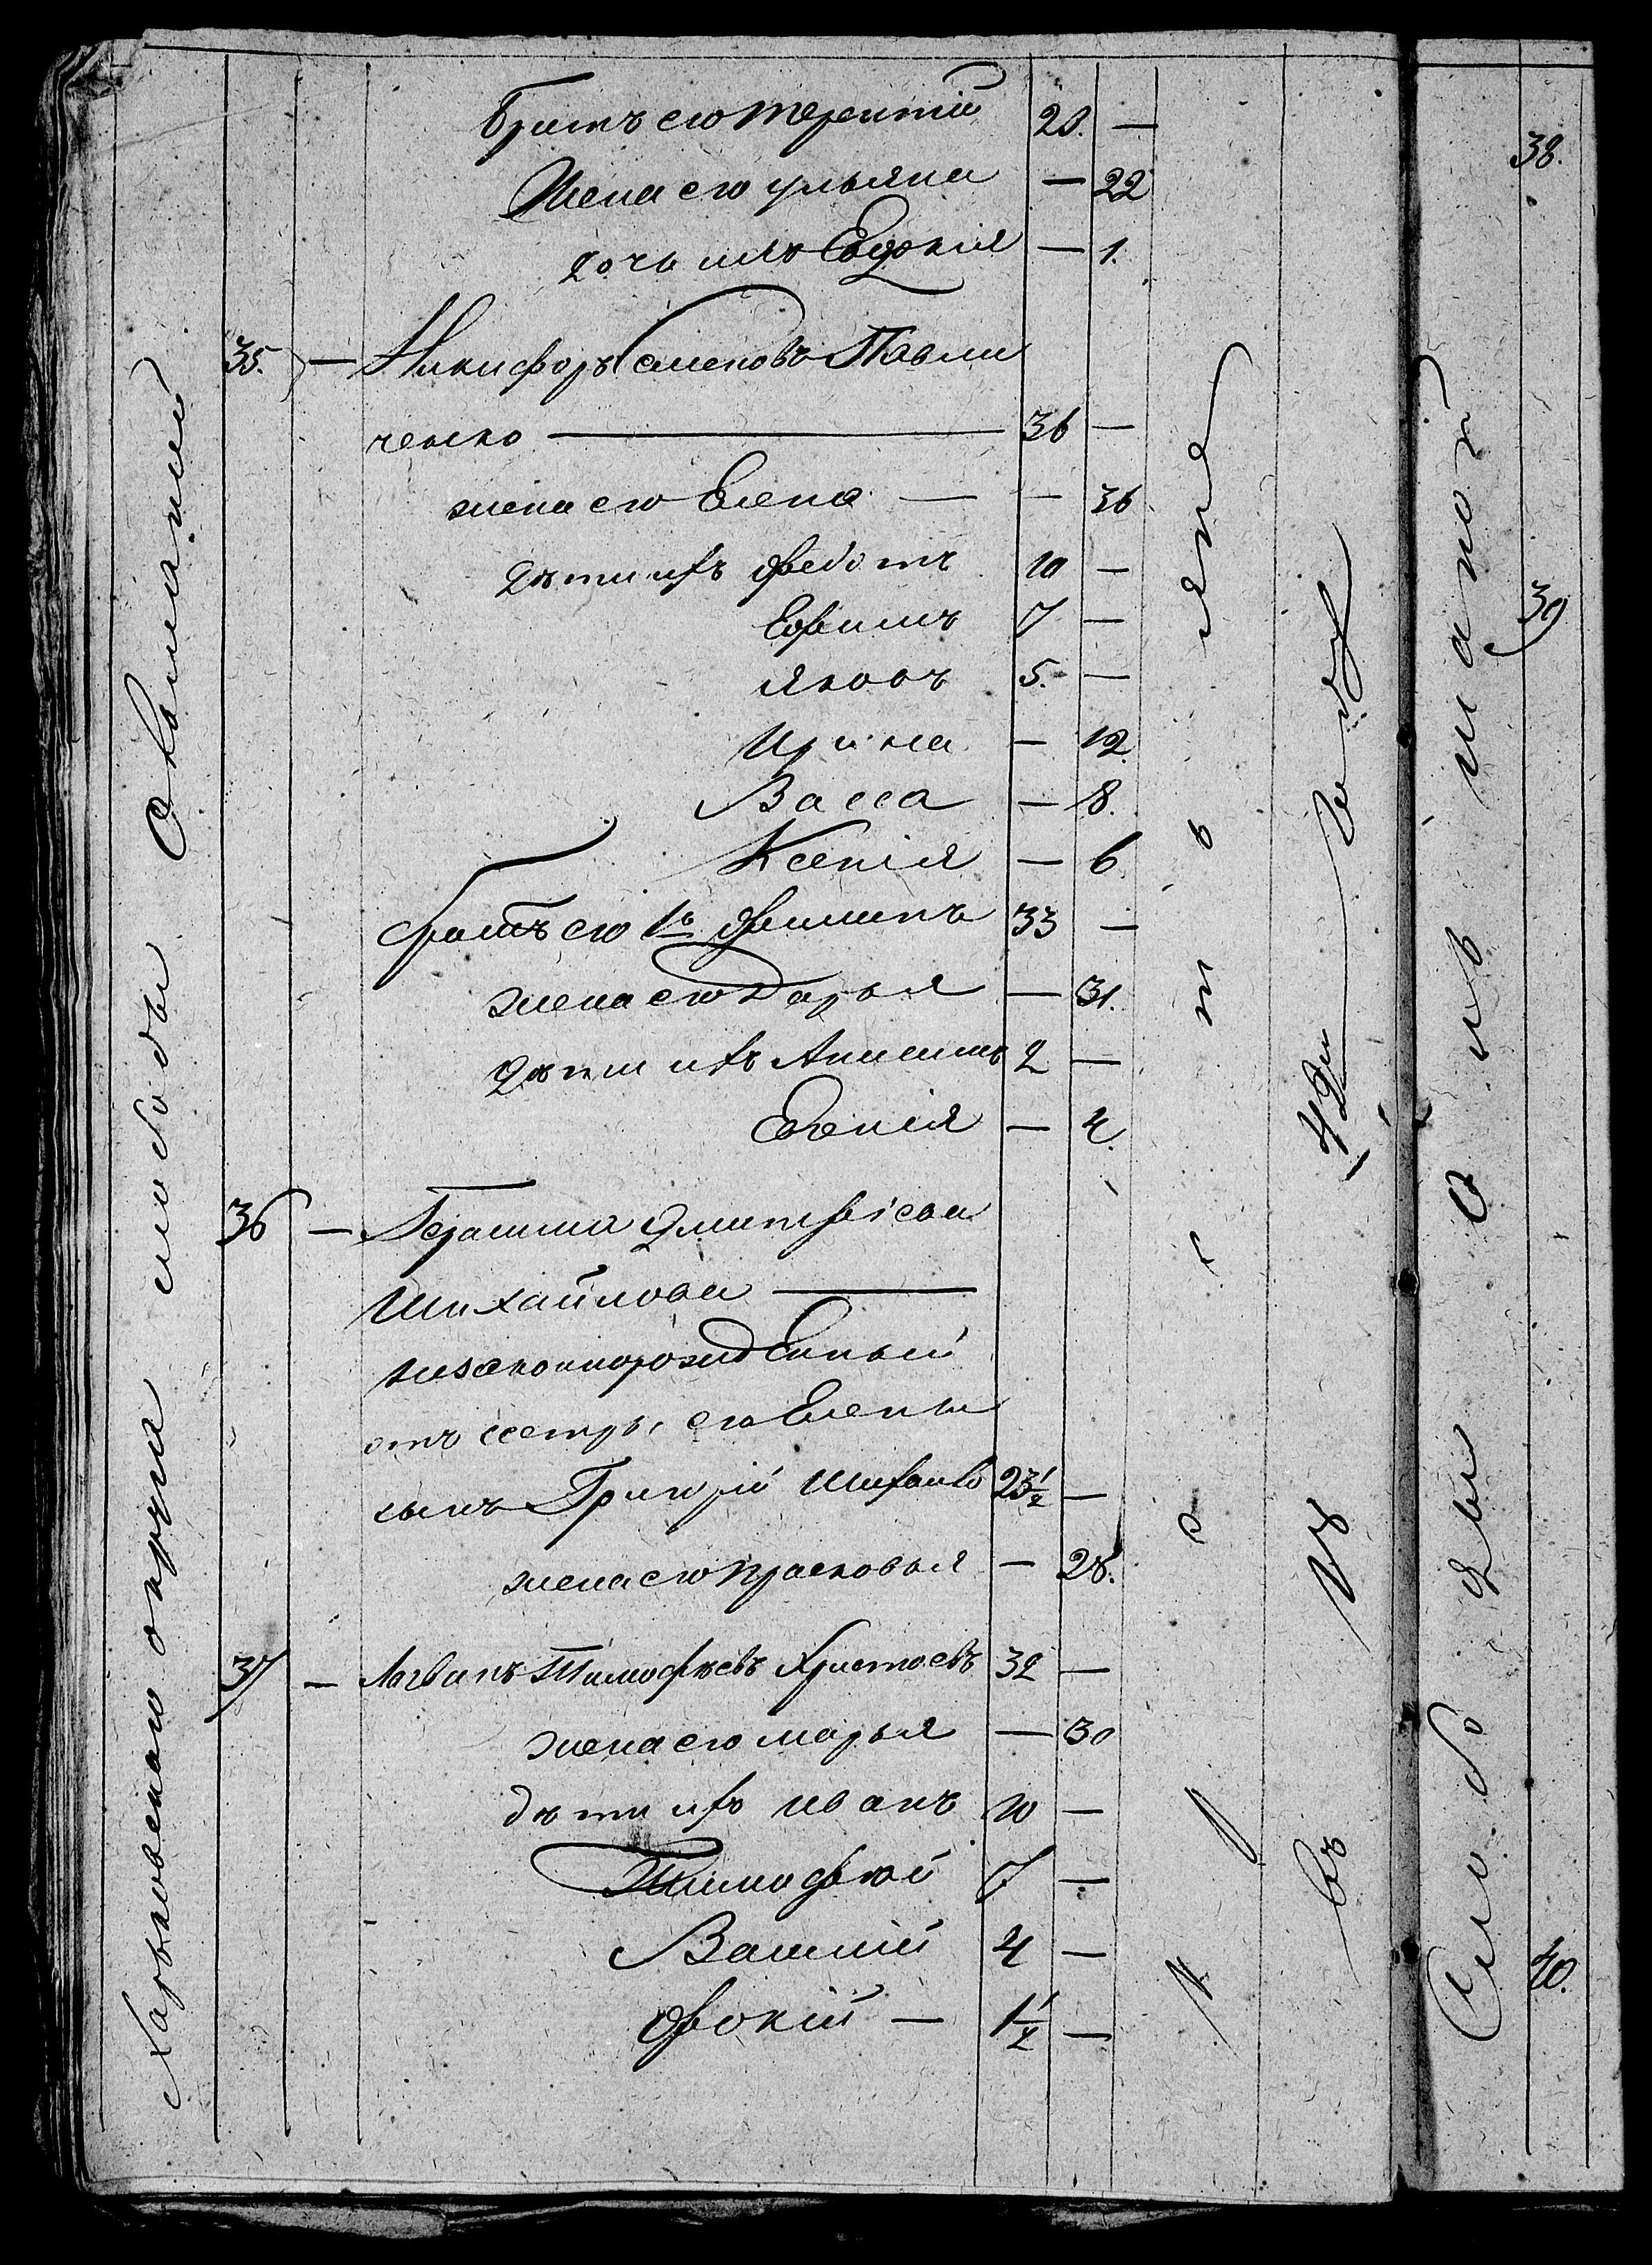 Братъ его терентий 20. —
Жена его ульяна — 22
дочь ихъ Евдокия — 1.
35. — Никифоръ Семеновъ Павли
ченко — 36 —
жена его Елена — — 36
дѣти ихъ Федотъ 10 —
Ефимъ 7 —
яковъ 5. —
Ирина — 12
Васса — 8.
Ксенія — 6
братъ его 1й Филипъ 33 —
жена его Дарья — 31.
дѣти ихъ Анисимъ 2 —
Евгенія — 4.
36 — Герасима Дмитріева
Михайлова —
незаконнорожденный
отъ сестры его Елены
сынъ Григорій Михайло 23½ —
жена его прасковья — 28.
37 — Логвинъ Тимофѣевъ Христоевъ 32 —
жена его марья — 30
дѣти ихъ иванъ 10 —
Тимофѣй 7 —
Василій 4 —
Фокій — 1½ —
Харьковскаго округа слободы
38.
39
40.
Слободы